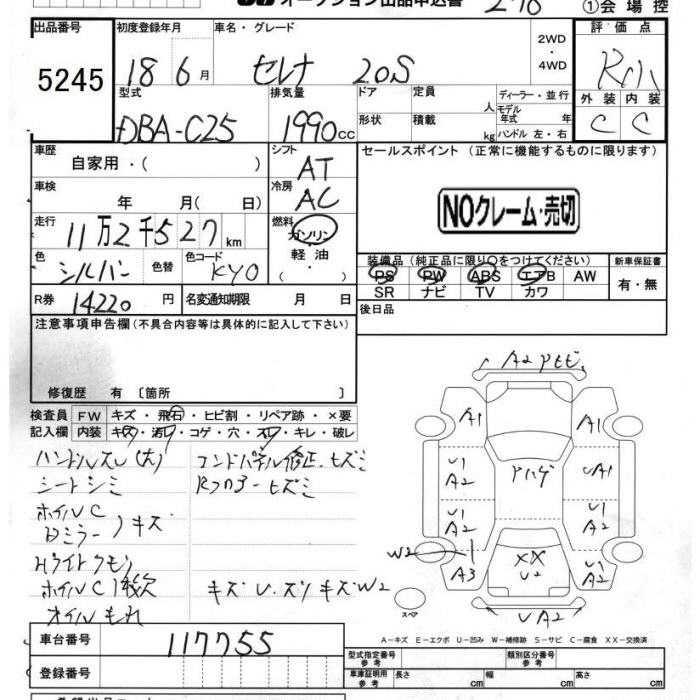 オークション出品申込書
①会場控
出品番号 初度登録年月 車名・グレード 2WD ・ 4WD 評価点
5245 18 6月 セレナ 20S
外装 内装
C C
型式 排気量 ドア 定員 人 ディーラー・並行
形状 積載 kg モデル年式 年
ハンドル 左・右
DBA-C25 1990cc
車歴 自家用・( ) シフト AT
セールスポイント (正常に機能するものに限ります)
車検 年 月( 日) 冷房 AC
NOクレーム・売切
走行 11万2千527km 燃料 ガソリン 軽油 ・( )
色 シルバー 色替 色コード KY0
装備品(純正品に限り○をつけてください) 新車保証書
PS PW ABS エアB AW 有・無
SR ナビ TV カワ
R券 14220円 名変通知期限 月 日
後日品
注意事項申告欄(不具合内容等は具体的に記入して下さい)
修復歴 有 [箇所 ]
検査員記入欄 FW キズ・飛石・ヒビ割・リペア跡・×要
内装 キズ・汚レ・コゲ・穴・スレ・キレ・破レ
ハンドルスレ(大)
コンドパネル修正・ヒズミ
シートシミ
Rフロアーヒズミ
ホイルC
Dミラー キズ
Hライトクモリ
ホイルC 1ヶ欠
キズ U.ズリキズW2
オイルもれ
A2
A1 A1
U1 A2 UA1
U1 A2 U1 A2
W2
A3 XX U2 U1 A2
UA2
スペア
A-キズ E-エクボ U-凹み W-補修跡 S-サビ C-腐食 XX-交換済
車台番号 117755
型式指定番号 参考 類別区分番号 参考
登録番号
車庫証明用 参考 長さ cm 幅 cm 高さ cm